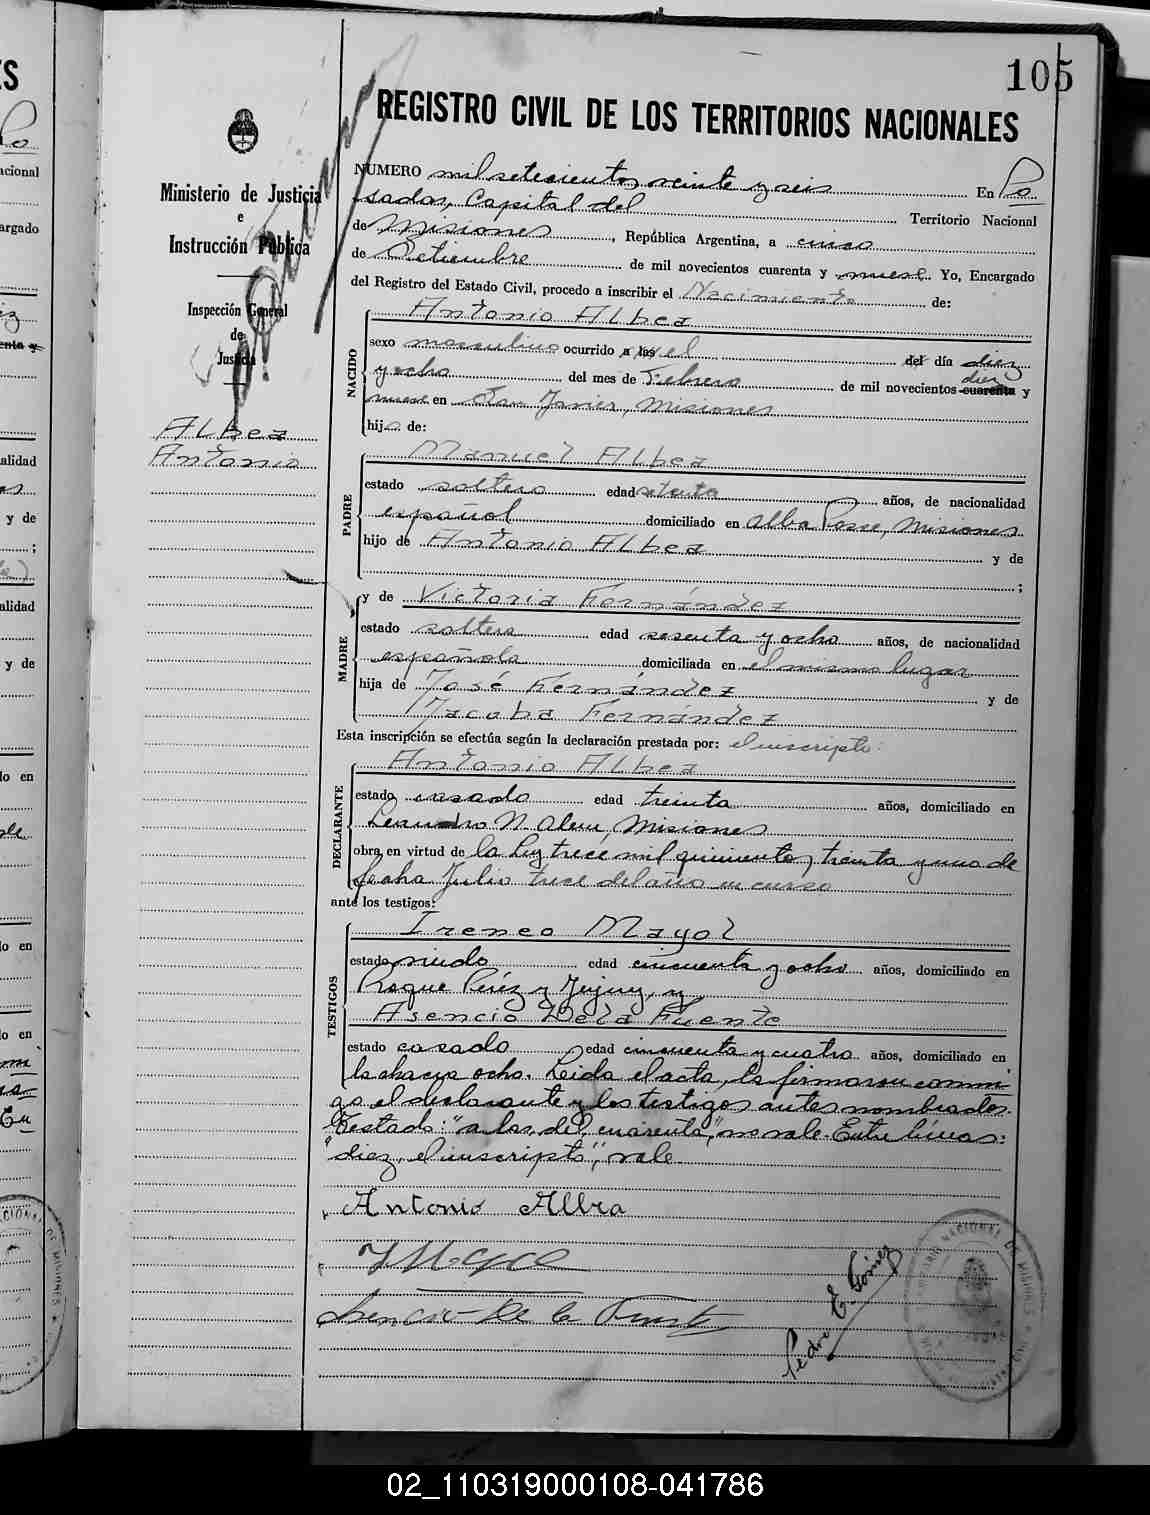 105
REGISTRO CIVIL DE LOS TERRITORIOS NACIONALES
Ministerio de Justicia
e
Instrucción Pública
Inspección General
de
Justicia
Albea
Antonio
NUMERO mil setecientos veinte y seis En Po
sadas, Capital del Territorio Nacional
de Misiones, República Argentina, a cinco
de Setiembre de mil novecientos cuarenta y nueve. Yo, Encargado
del Registro del Estado Civil, procedo a inscribir el Nacimiento de:
Antonio Albea
NACIDO
sexo masculino ocurrido a las el del día diez
y ocho del mes de Febrero de mil novecientos cuarenta diez y
nueve en San Javier, Misiones
hijo de:
PADRE
Manuel Albea
estado soltero edad setenta años, de nacionalidad
español domiciliado en Alba Posse, Misiones
hijo de Antonio Albea y de
;
MADRE
y de Victoria Fernández
estado soltera edad sesenta y ocho años, de nacionalidad
española domiciliada en el mismo lugar
hija de José Fernández y de
Jacoba Fernández
Esta inscripción se efectúa según la declaración prestada por: el inscripto:
DECLARANTE
Antonio Albea
estado casado edad treinta años, domiciliado en
Leandro N. Alem, Misiones
obra en virtud de la ley trece mil quinientos treinta y uno de
fecha Julio trece del año en curso
ante los testigos:
TESTIGOS
Ireneo Mayol
estado viudo edad cincuenta y ocho años, domiciliado en
Roque Pérez y Jujuy, y
Asencio De la Fuente
estado casado edad cincuenta y cuatro años, domiciliado en
la chacra ocho. Leida el acta, la firmaron conmi
go el declarante y los testigos antes nombrados.
Testado: "a las, del, cuarenta," no vale. Entre líneas:
"diez, el inscripto", vale
Antonio Albea
Asencio De la Fuente
Pedro E. Gómez
02_110319000108-041786